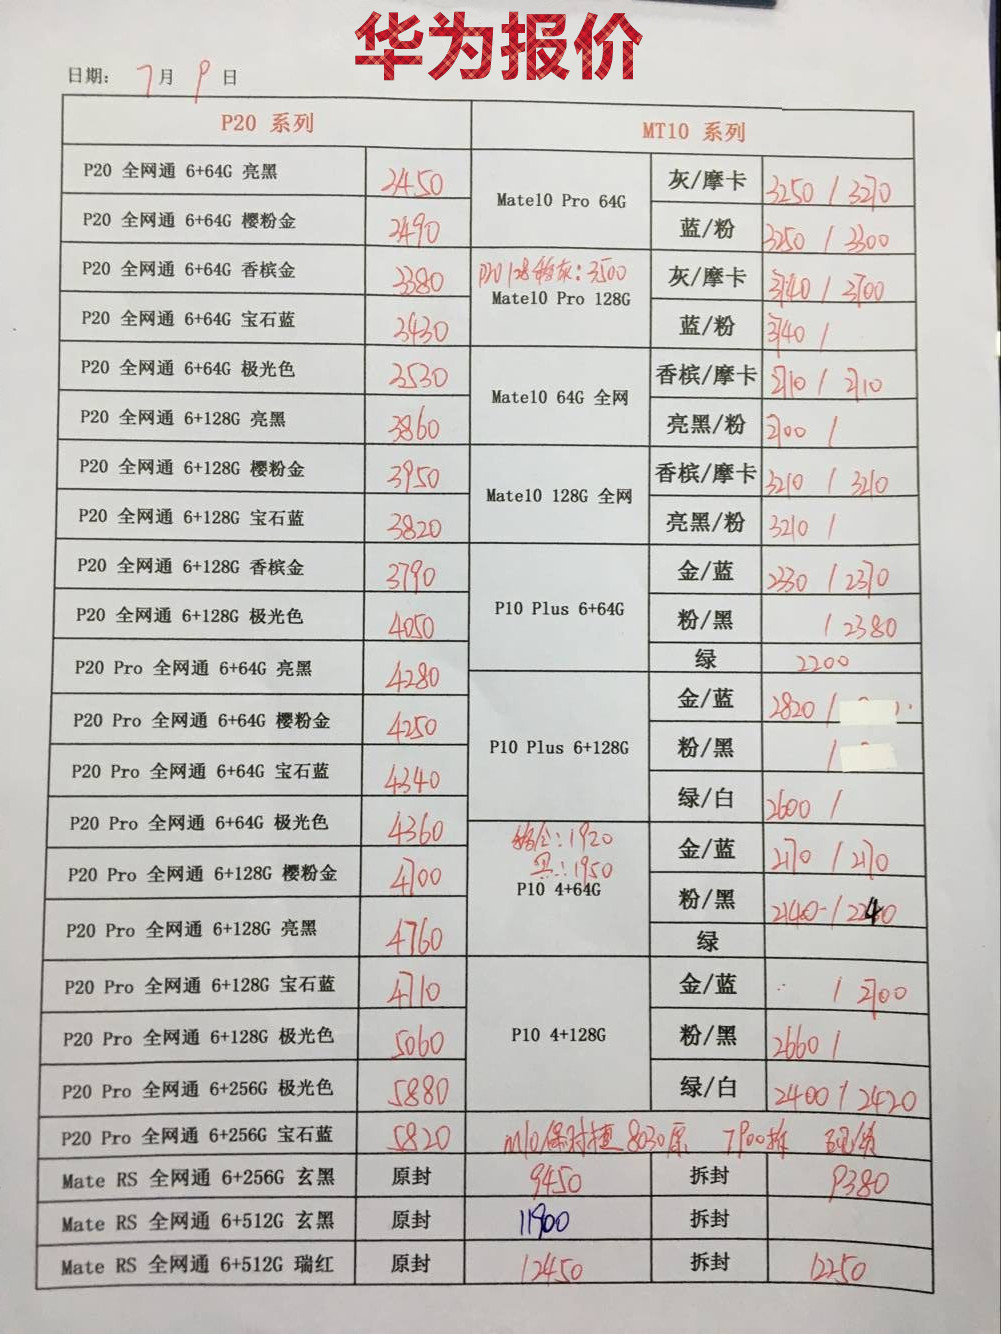 华为报价
日期： 7 月 9 日
P20 系列
MT10 系列
P20 全网通 6+64G 亮黑 3450
P20 全网通 6+64G 樱粉金 3490
P20 全网通 6+64G 香槟金 3380
P20 全网通 6+64G 宝石蓝 3430
P20 全网通 6+64G 极光色 3530
P20 全网通 6+128G 亮黑 3860
P20 全网通 6+128G 樱粉金 3950
P20 全网通 6+128G 宝石蓝 3820
P20 全网通 6+128G 香槟金 3790
P20 全网通 6+128G 极光色 4050
P20 Pro 全网通 6+64G 亮黑 4280
P20 Pro 全网通 6+64G 樱粉金 4250
P20 Pro 全网通 6+64G 宝石蓝 4340
P20 Pro 全网通 6+64G 极光色 4360
P20 Pro 全网通 6+128G 樱粉金 4700
P20 Pro 全网通 6+128G 亮黑 4760
P20 Pro 全网通 6+128G 宝石蓝 4710
P20 Pro 全网通 6+128G 极光色 5060
P20 Pro 全网通 6+256G 极光色 5880
P20 Pro 全网通 6+256G 宝石蓝 5820
Mate10 Pro 64G
灰/摩卡 3250 / 3270
蓝/粉 3250 / 3300
3500
Mate10 Pro 128G
灰/摩卡 3740 / 3700
蓝/粉 3740 /
Mate10 64G 全网
香槟/摩卡 2710 / 2710
亮黑/粉 2700 /
Mate10 128G 全网
香槟/摩卡 3210 / 3210
亮黑/粉 3210 /
P10 Plus 6+64G
金/蓝 2330 / 2370
粉/黑 / 2380
绿 2200
P10 Plus 6+128G
金/蓝 2820 /
粉/黑 /
绿/白 2600 /
1920
1950
P10 4+64G
金/蓝 2170 / 2170
粉/黑 2140 - / 2240
绿
P10 4+128G
金/蓝 / 2700
粉/黑 2660 /
绿/白 2400 / 2420
m10保时捷 8030原 7900拆
Mate RS 全网通 6+256G 玄黑 原封 9450 拆封 9380
Mate RS 全网通 6+512G 玄黑 原封 11900 拆封
Mate RS 全网通 6+512G 瑞红 原封 12450 拆封 12250